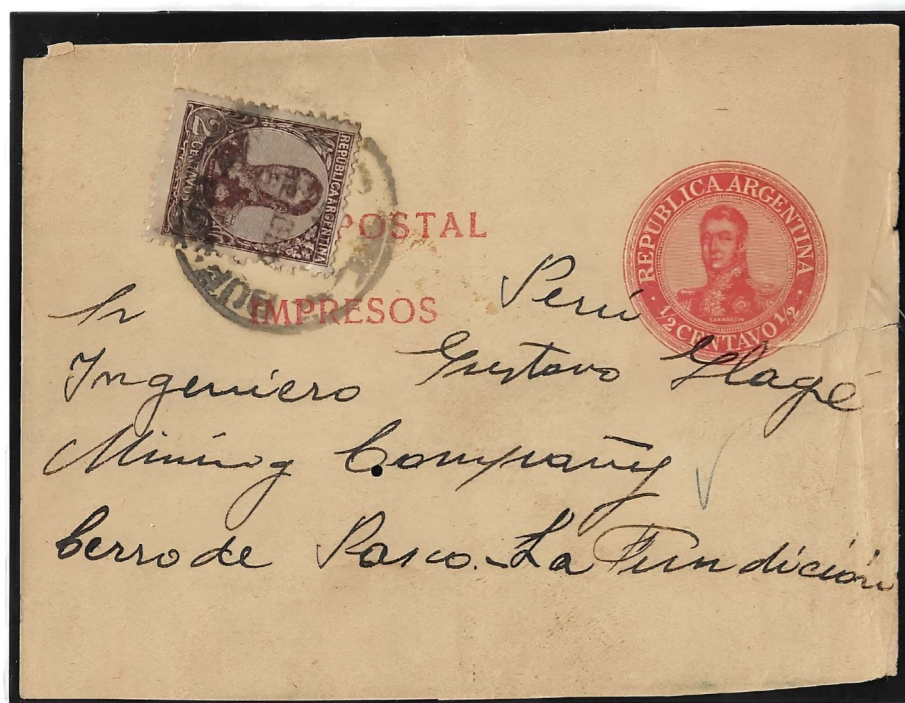 REPUBLICA ARGENTINA
2 CENTAVOS
POSTAL
IMPRESOS
REPUBLICA ARGENTINA
SAN MARTIN
1/2 CENTAVO 1/2
Perú
Sr
Ingeniero Gustavo
Mining Compañy
Cerro de Pasco - La Fundición